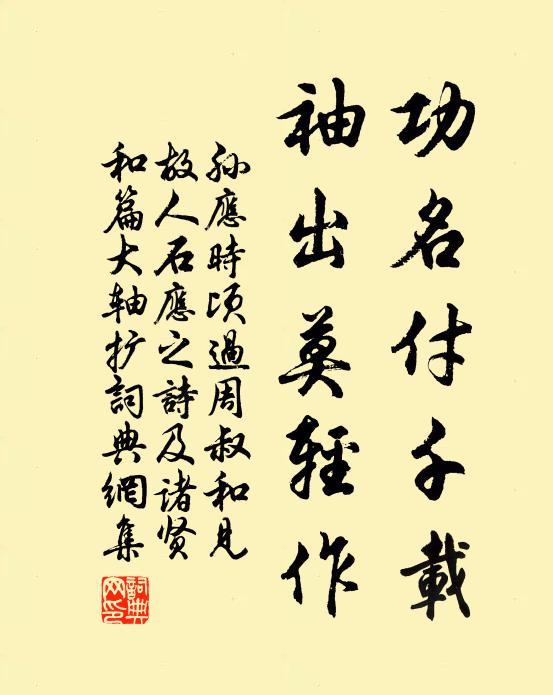 功名付千載
袖出莫輕作
孙應時頃過周叔和見
故人石應之詩及諸贤
和篇大轴扩詞典網集
詞典网印